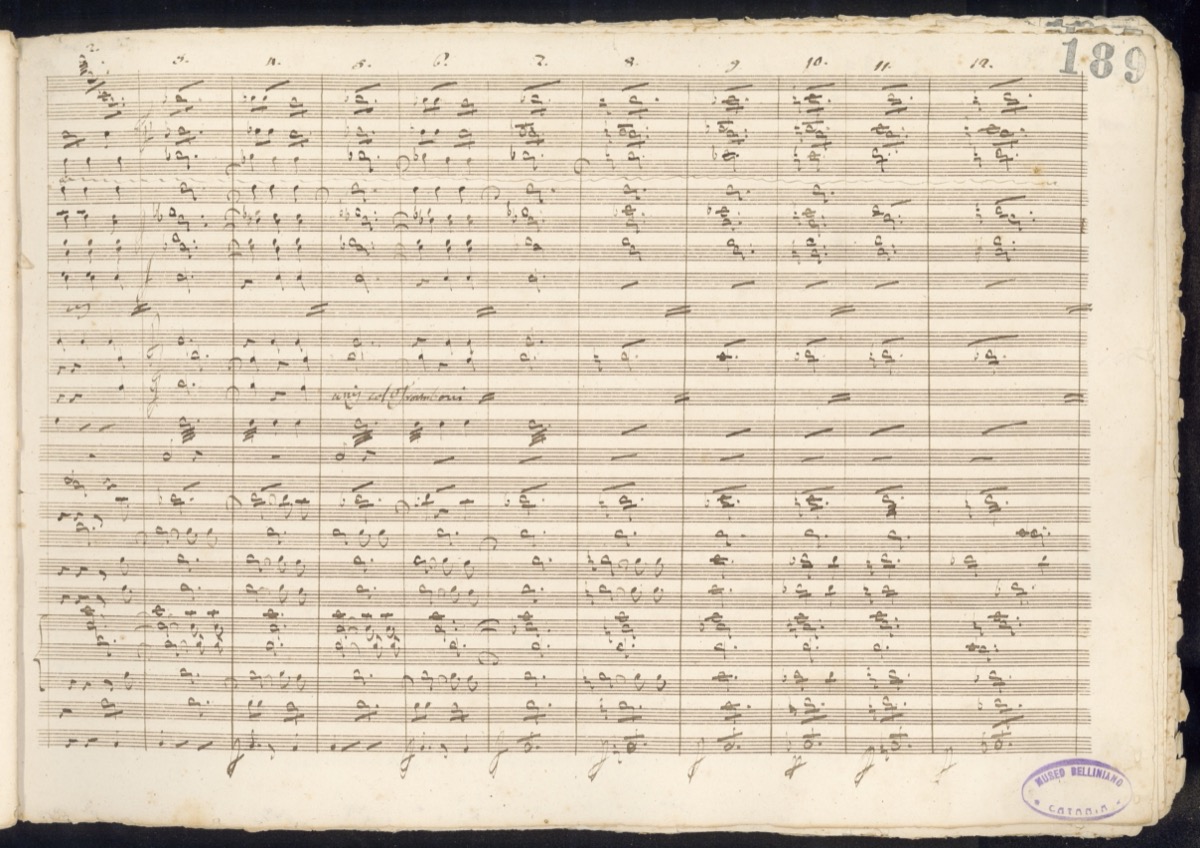 189
2. 3. 4. 5. 6. 7. 8. 9 10. 11. 12.
unis col Tromboni
MUSEO BELLINIANO
CATANIA